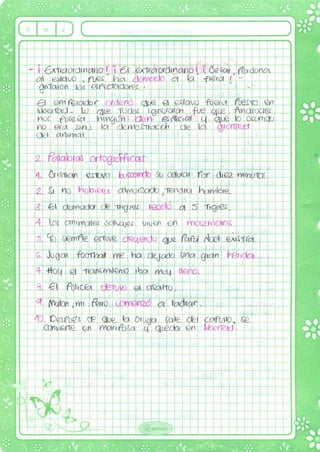 - ¡ Extraordinario! ¡ Es extraordinario! ¡ César, perdona
al esclavo, pues ha domado a la fiera ! -
gritaron los espectadores.
El emperador ordenó que el esclavo fuera puesto en
libertad. Lo que todos ignoraron fue que Androcles
no poseía ningún don especial y que lo ocurrido
no era sino la demostración de la gratitud
del animal.
2. Palabras ortográficas
1. Cristian estuvo buscando su celular por diez minutos.
2. Si no hubiera almorzado, tendría hambre.
3. El domador de tigres a 5 tigres.
4. Los animales salvajes viven en
5. Yo siempre estuve creyendo que Papá Noel existía.
6. Jugar football me ha dejado una gran herida.
7. Hoy el Transmilenio iba muy lleno.
8. El policía detuvo el asalto.
9. , mi perro comenzó a ladrar.
10. Después de que la oruga sale del capullo, se
convierte en mariposa y queda en libertad.